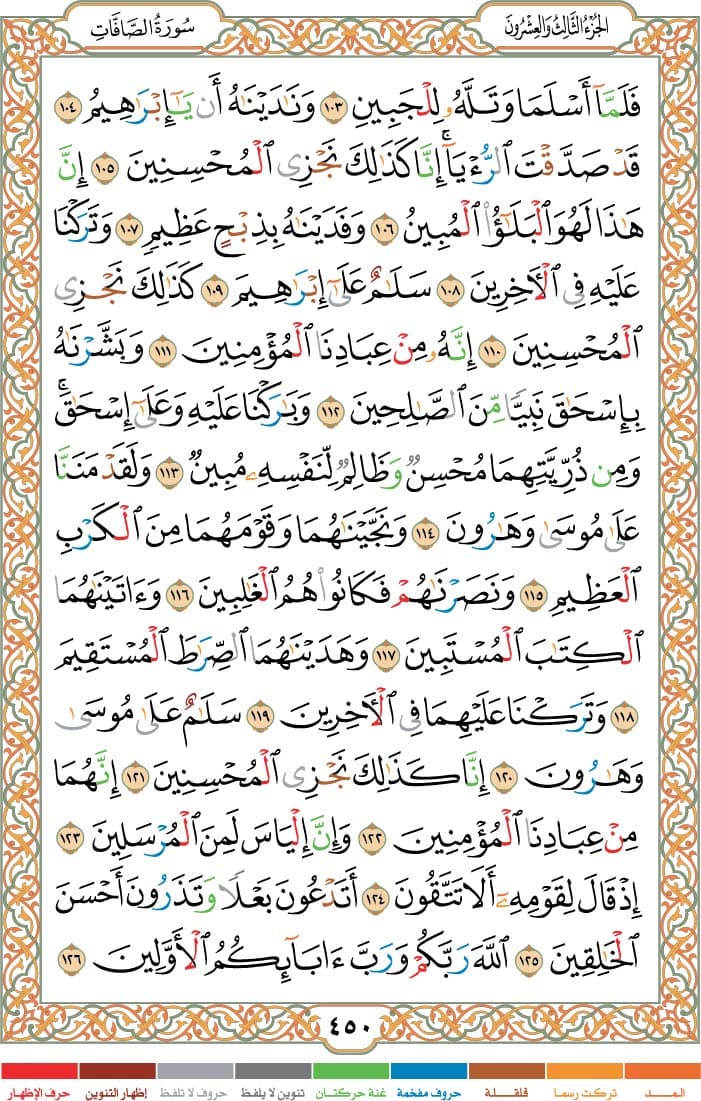 الجزء الثالث والعشرون
سورة الصافات
فَلَمَّآ أَسْلَمَا وَتَلَّهُۥ لِلْجَبِينِ ١٠٣ وَنَٰدَيْنَٰهُ أَن يَٰٓإِبْرَٰهِيمُ ١٠٤
قَدْ صَدَّقْتَ ٱلرُّءْيَآ ۚ إِنَّا كَذَٰلِكَ نَجْزِى ٱلْمُحْسِنِينَ ١٠٥ إِنَّ
هَٰذَا لَهُوَ ٱلْبَلَٰٓؤُا۟ ٱلْمُبِينُ ١٠٦ وَفَدَيْنَٰهُ بِذِبْحٍ عَظِيمٍ ١٠٧ وَتَرَكْنَا
عَلَيْهِ فِى ٱلْـَٔاخِرِينَ ١٠٨ سَلَٰمٌ عَلَىٰٓ إِبْرَٰهِيمَ ١٠٩ كَذَٰلِكَ نَجْزِى
ٱلْمُحْسِنِينَ ١١٠ إِنَّهُۥ مِنْ عِبَادِنَا ٱلْمُؤْمِنِينَ ١١١ وَبَشَّرْنَٰهُ
بِإِسْحَٰقَ نَبِيًّا مِّنَ ٱلصَّٰلِحِينَ ١١٢ وَبَٰرَكْنَا عَلَيْهِ وَعَلَىٰٓ إِسْحَٰقَ ۚ
وَمِن ذُرِّيَّتِهِمَا مُحْسِنٌ وَظَالِمٌ لِّنَفْسِهِۦ مُبِينٌ ١١٣ وَلَقَدْ مَنَنَّا
عَلَىٰ مُوسَىٰ وَهَٰرُونَ ١١٤ وَنَجَّيْنَٰهُمَا وَقَوْمَهُمَا مِنَ ٱلْكَرْبِ
ٱلْعَظِيمِ ١١٥ وَنَصَرْنَٰهُمْ فَكَانُوا۟ هُمُ ٱلْغَٰلِبِينَ ١١٦ وَءَاتَيْنَٰهُمَا
ٱلْكِتَٰبَ ٱلْمُسْتَبِينَ ١١٧ وَهَدَيْنَٰهُمَا ٱلصِّرَٰطَ ٱلْمُسْتَقِيمَ
١١٨ وَتَرَكْنَا عَلَيْهِمَا فِى ٱلْـَٔاخِرِينَ ١١٩ سَلَٰمٌ عَلَىٰ مُوسَىٰ
وَهَٰرُونَ ١٢٠ إِنَّا كَذَٰلِكَ نَجْزِى ٱلْمُحْسِنِينَ ١٢١ إِنَّهُمَا
مِنْ عِبَادِنَا ٱلْمُؤْمِنِينَ ١٢٢ وَإِنَّ إِلْيَاسَ لَمِنَ ٱلْمُرْسَلِينَ ١٢٣
إِذْ قَالَ لِقَوْمِهِۦٓ أَلَا تَتَّقُونَ ١٢٤ أَتَدْعُونَ بَعْلًا وَتَذَرُونَ أَحْسَنَ
ٱلْخَٰلِقِينَ ١٢٥ ٱللَّهَ رَبَّكُمْ وَرَبَّ ءَابَآئِكُمُ ٱلْأَوَّلِينَ ١٢٦
٤٥٠
المـــد تركت رسما قلقـــلة حروف مفخمة غنة حركتان تنوين لا يلفظ حروف لا تلفظ إظهار التنوين حرف الإظهار